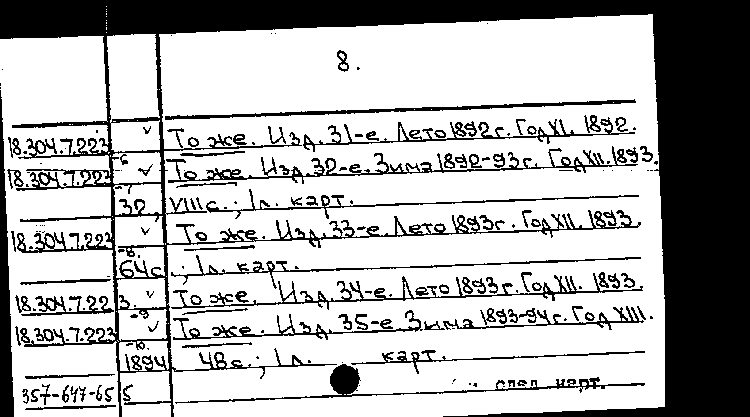 8.
18.304.7.223 ✓ То же. Изд. 31-е. Лето 1892 г. Год XI. 1892.
-6
18.304.7.223 ✓ То же. Изд. 32-е. Зима 1892-93 г. Год XII. 1893.
-7
32, VIII с.; 1 л. карт.
18.304.7.223 ✓ То же. Изд. 33-е. Лето 1893 г. Год XII. 1893.
-8.
64 с.; 1 л. карт.
18.304.7.223. ✓ То же. Изд. 34-е. Лето 1893 г. Год XII. 1893.
-9
18.304.7.223 ✓ То же. Изд. 35-е Зима 1893-94 г. Год XIII.
-10.
1894. 48 с.; 1 л. карт.
357-647-65 5 след. карт.